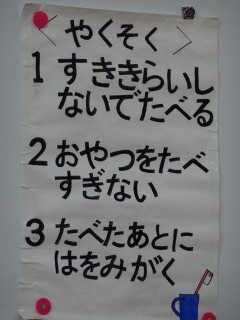 <やくそく>
1 すききらいし
ないでたべる
2 おやつをたべ
すぎない
3 たべたあとに
はをみがく